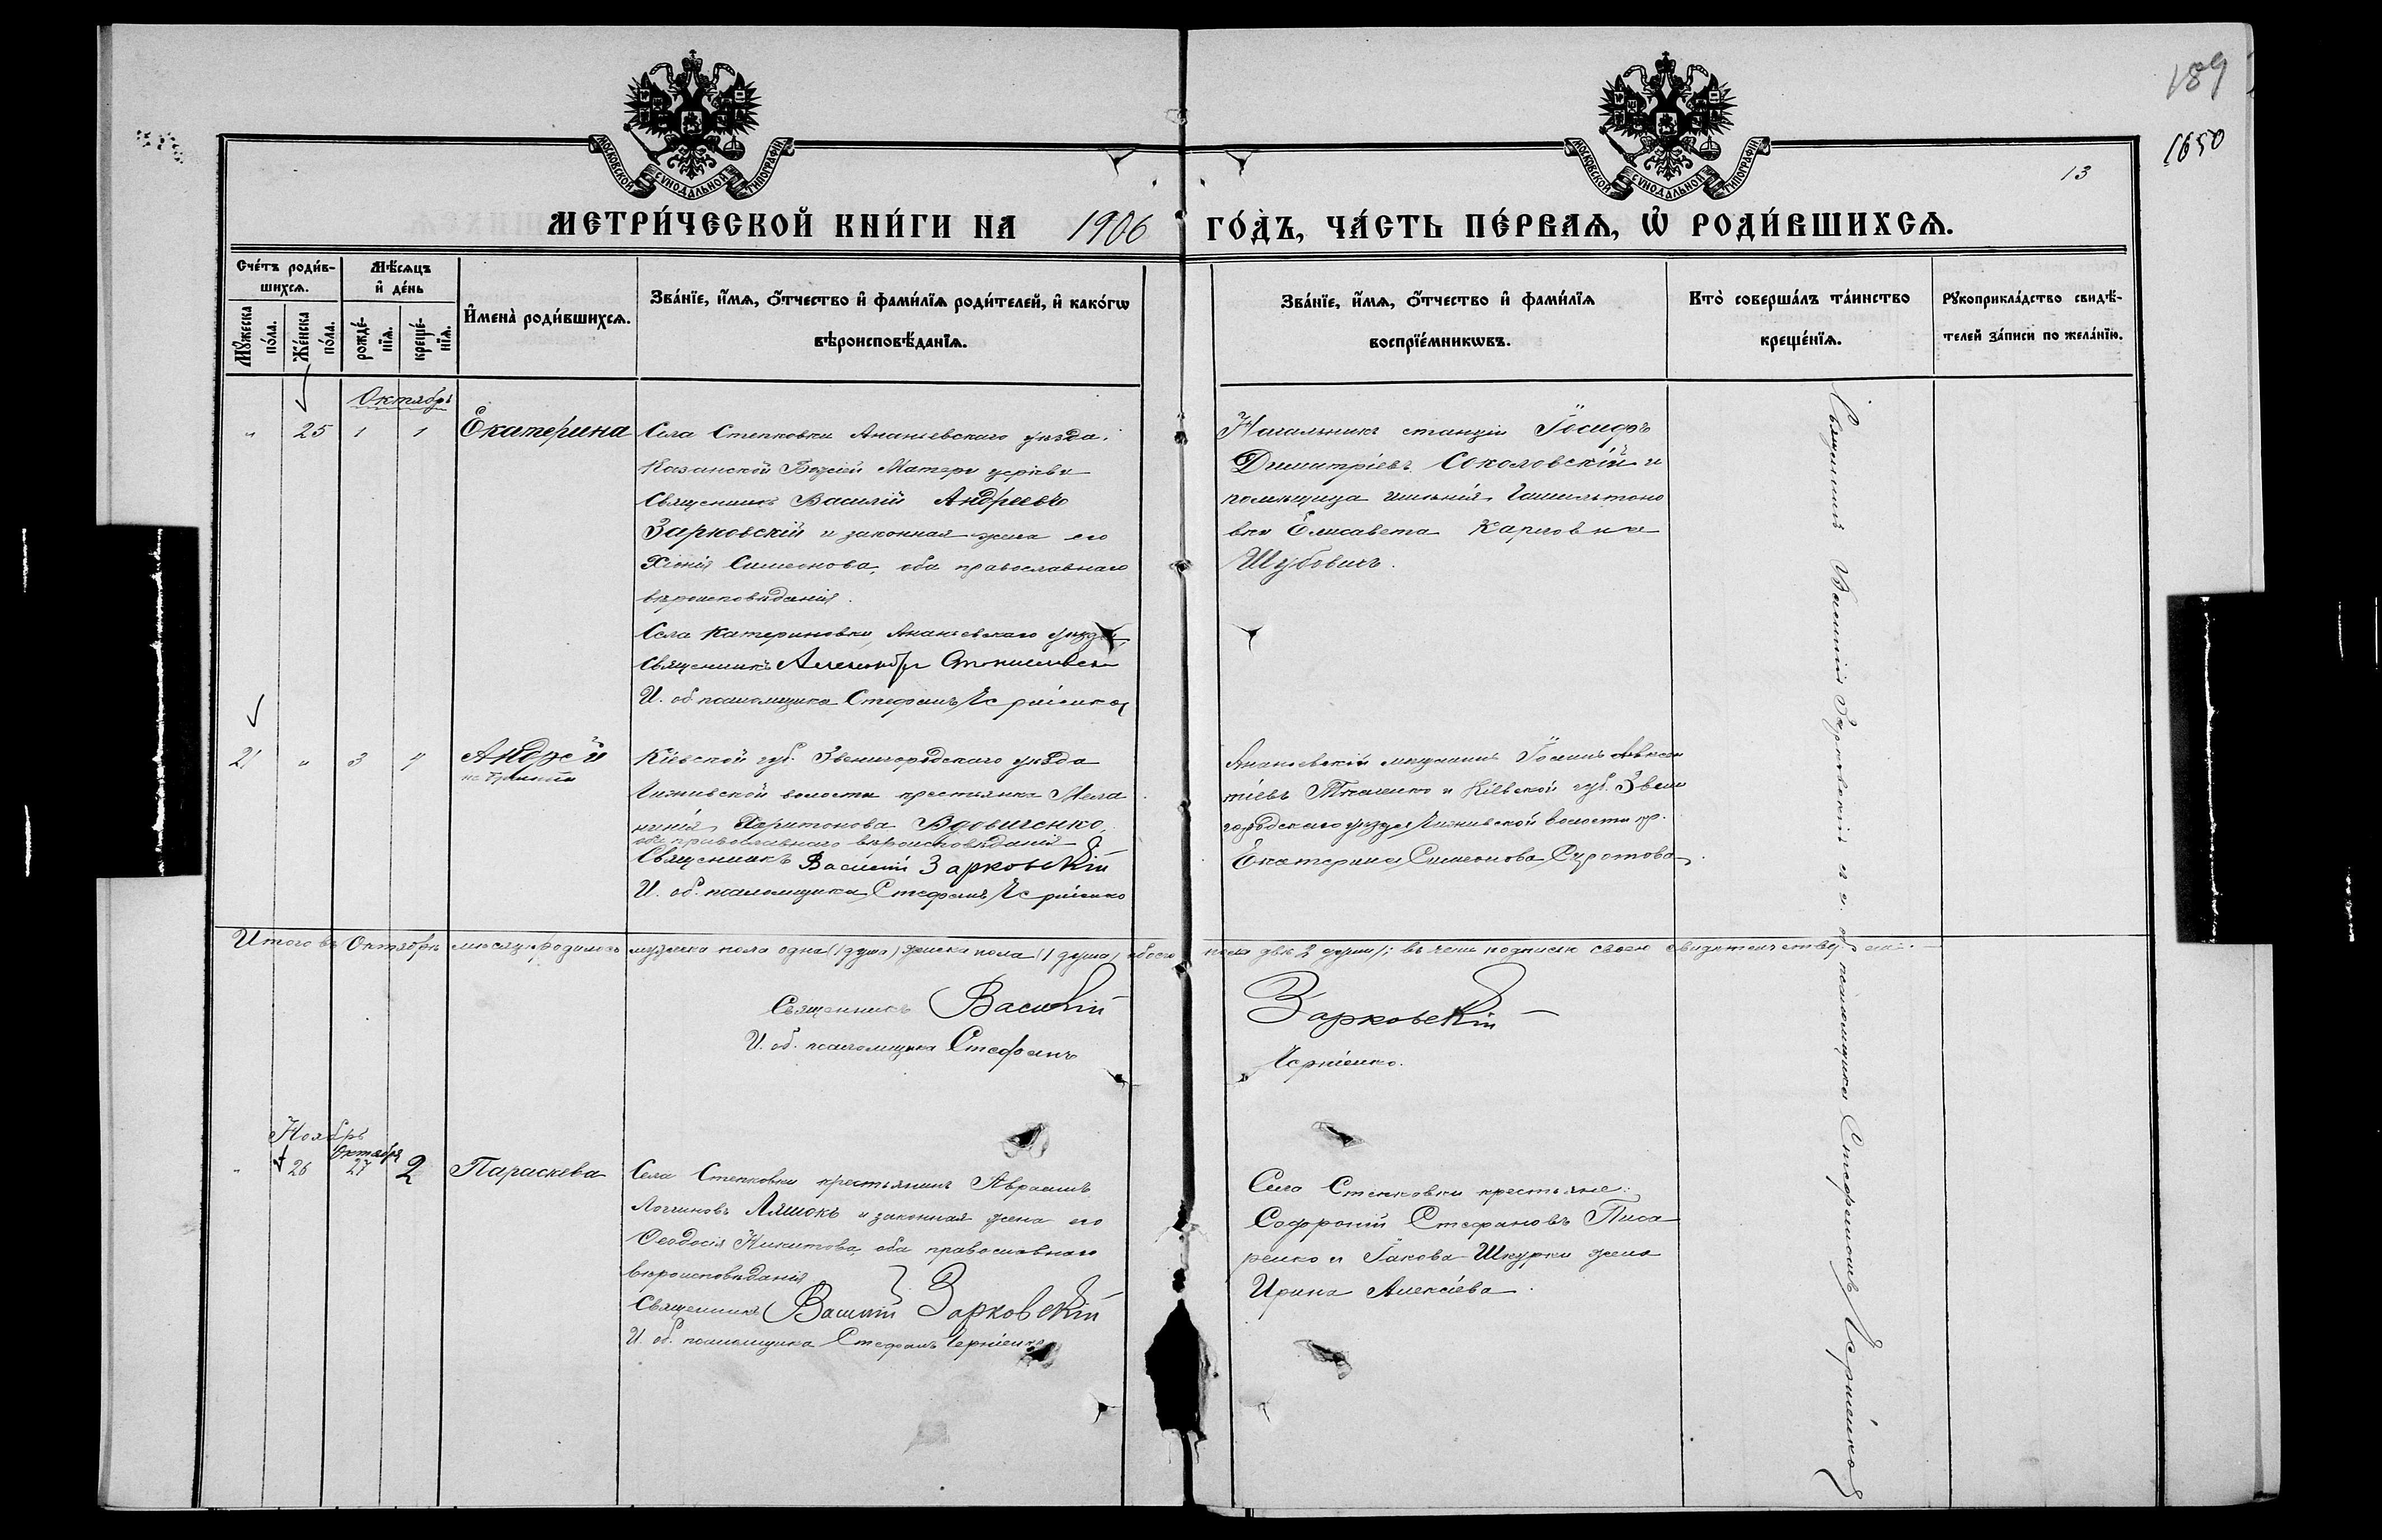 189
1650
13
МОСКОВСКОЙ СѴНОДАЛЬНОЙ ТИПОГРАФІИ
МОСКОВСКОЙ СѴНОДАЛЬНОЙ ТИПОГРАФІИ
МЕТРИ́ЧЕСКОЙ КНИ́ГИ НА 1906 ГО́ДЪ, ЧА́СТЬ ПЕ́РВАѦ, Ѡ҆ РОДИ́ВШИХСѦ.
Сче́тъ роди́в-
шихсѧ.
Мꙋ́жеска по́ла.
Же́нска по́ла.
Мѣ́сѧцъ
и҆ де́нь
рожде́-нїѧ.
креще́-нїѧ.
И҆мена̀ роди́вшихсѧ.
Зва́нїе, и҆́мѧ, ѻ҆́тчество и҆ фами́лїѧ роди́телей, и҆ како́гѡ
вѣроисповѣ́данїѧ.
Зва́нїе, и҆́мѧ, ѻ҆́тчество и҆ фами́лїѧ
воспрїе́мникѡвъ.
Кто̀ соверша́лъ та́инство
креще́нїѧ.
Рꙋкоприкла́дство свидѣ́-
телей за́писи по жела́нїю.
Октябрь
" 25 1 1 Екатерина
Села Степковки Ананьевскаго уѣзда,
Казанской Божіей Матери церкви
Священникъ Василій Андреевъ
Зарковскій и законная жена его
Хіонія Симеонова, оба православнаго
вѣроисповѣданія.
Села Катериновки, Ананьевскаго уѣзда,
Священникъ
И. об псаломщика Стефанъ Черніенко
Начальникъ станціи Іосифъ
Димитріевъ Соколовскій и
помѣщица имѣнія Гамильтоно
вки Елисавета Карловна
Шубовичъ.
21 " 3 4 Андрей
Кіевской губ. Звенигородскаго уѣзда
Чиживской волости крестьянка Мела
нія Харитонова Вдовиченко,
православнаго вѣроисповѣданія
Священникъ Василій Зарковскій
И. об. псаломщика Стефанъ Черніенко
Ананьевскій мѣщанинъ Іоаннъ Авксен
тіевъ Ткаченко и Кіевской губ. Звени
городскаго уѣзда Чиживской волости кр.
Екатерина Симеонова Сиротова.
Итого въ Октябрѣ мѣсяцѣ родилось мужеска пола одна (1 душа) женска пола (1 душа) обоего пола двѣ 2 души; въ чемъ подписью своею свидѣтельствуемъ.
Священникъ Василій Зарковскій
И. об. псаломщика Стефанъ Черніенко.
Ноябрь
Октября
" 26 27 2 Параскева
Села Степковки крестьянинъ Авраамъ
Логгиновъ Ляшокъ и законная жена его
Ѳеодосія Никитова, оба православнаго
вѣроисповѣданія
Священникъ Василій Зарковскій
И. об. псаломщика Стефанъ Черніенко
Села Степковки крестьяне:
Софроній Стефановъ Писа
ренко и Іакова Шкурки жена
Ирина Алексіева.
Священникъ Василій Зарковскій и и. об псаломщика Стефанъ Черніенко